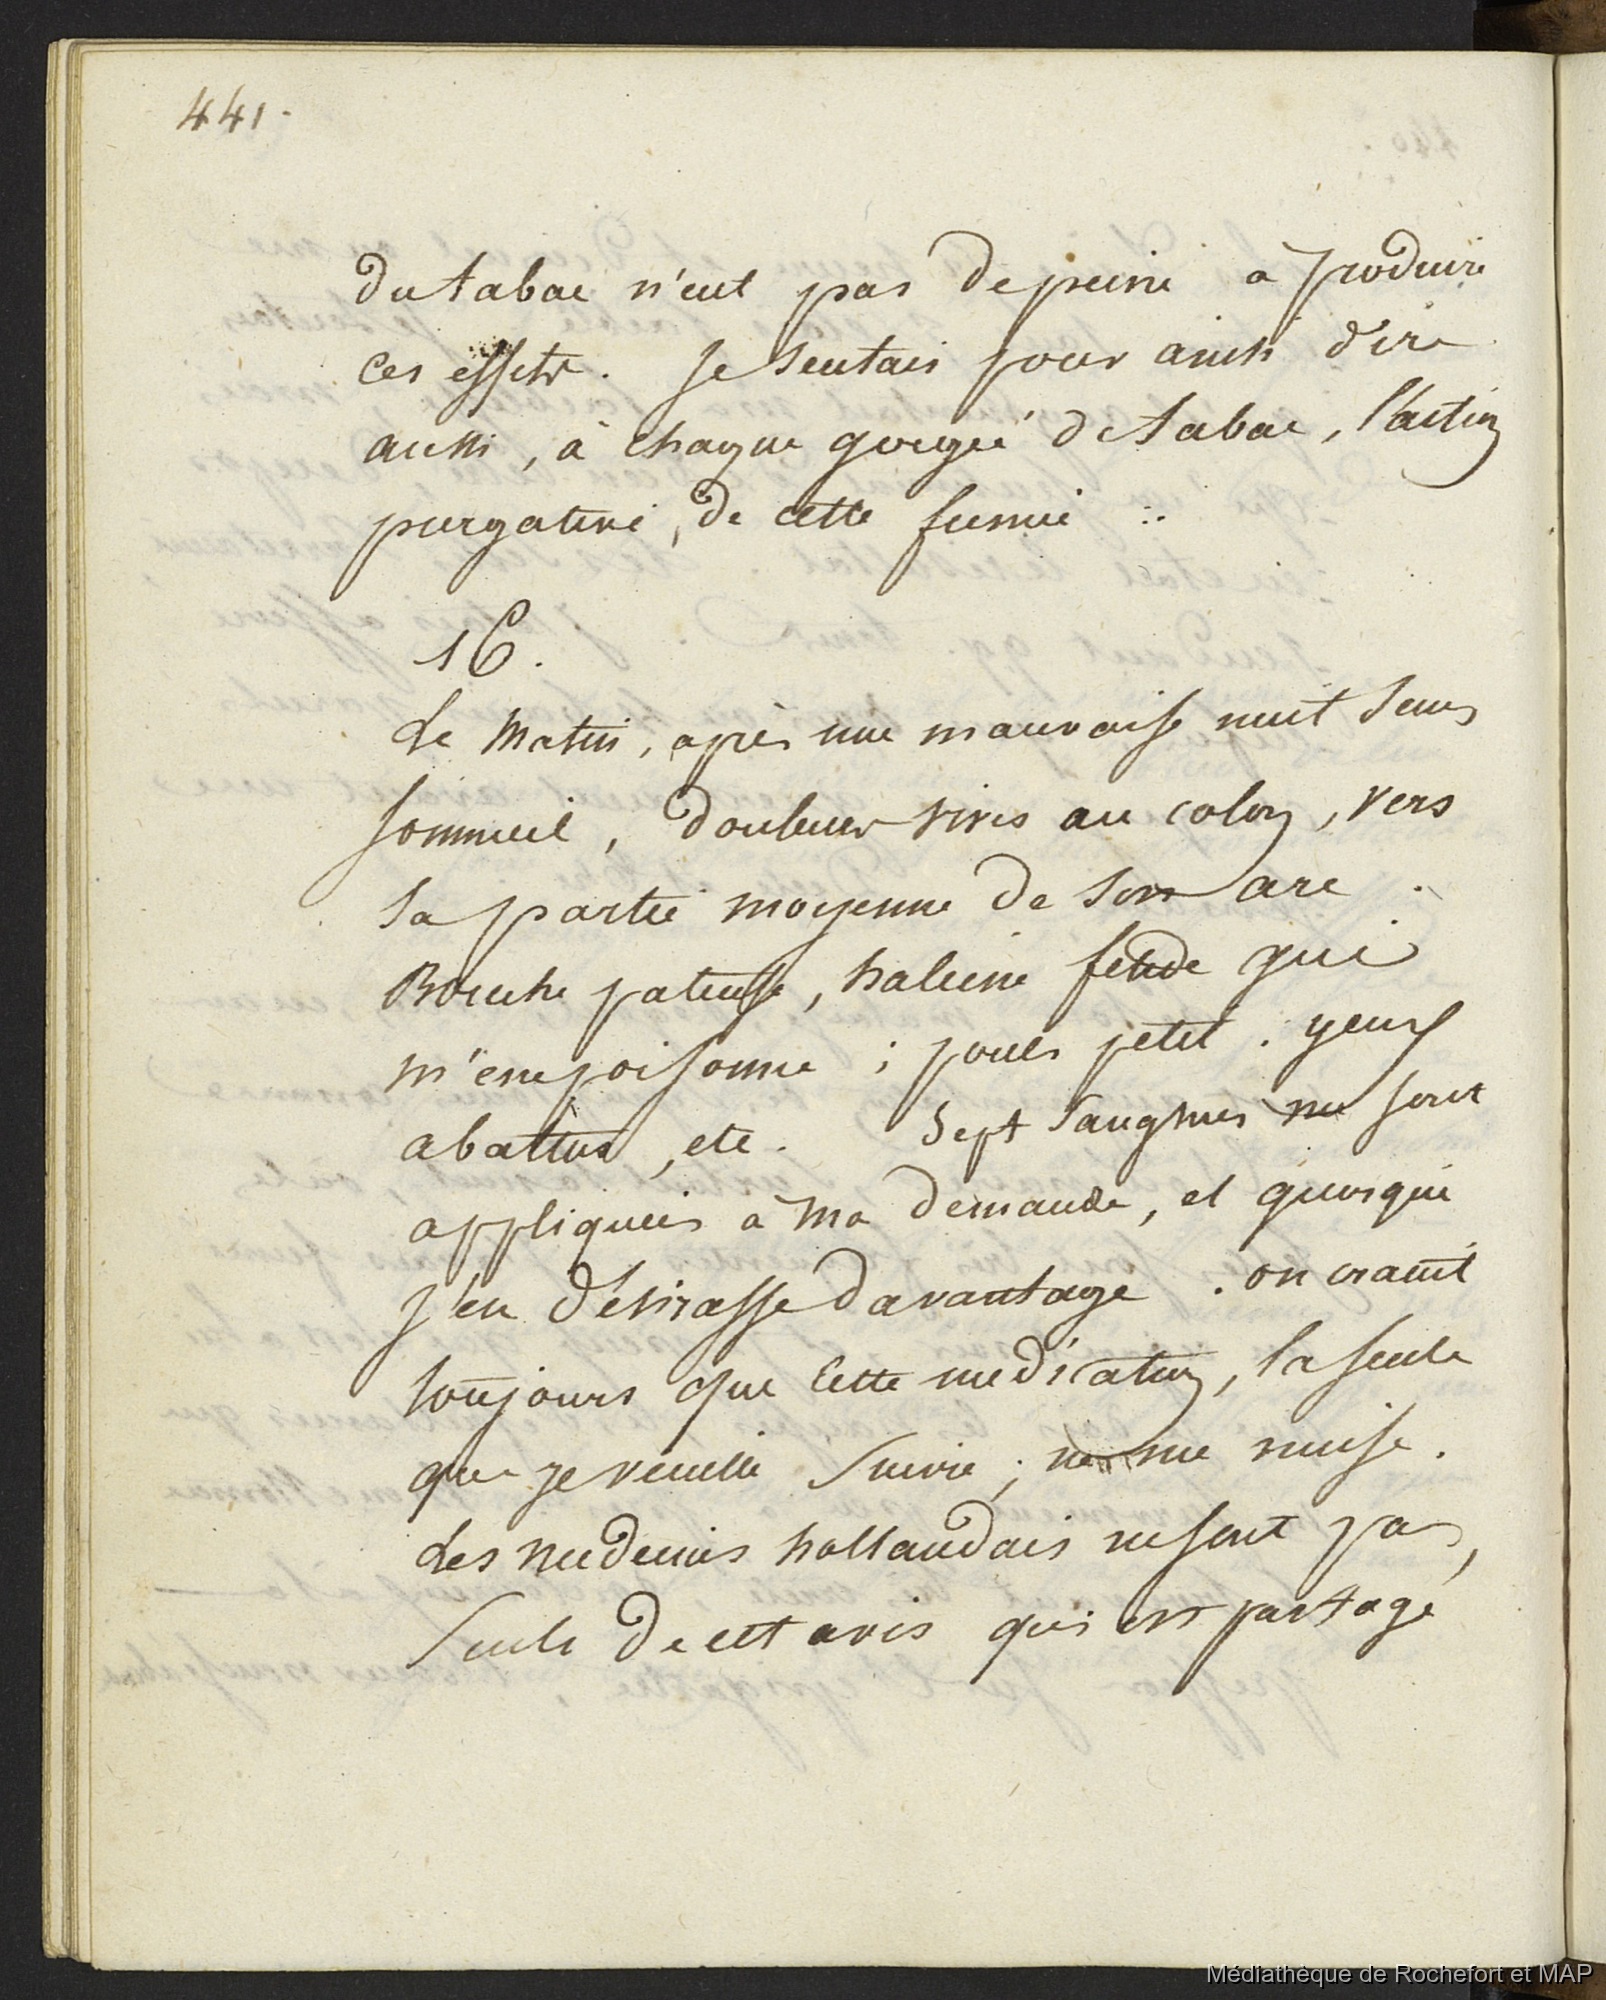 441.
du tabac n'eut pas de peine a produire
ces effets. je sentais pour ainsi dire
aussi, à chaque gorgée de tabac, l'action
purgative, de cette fumée :.
16.
Le matin, après une mauvaise nuit sans
sommeil, douleurs vives au colon, vers
la partie moyenne de son arc.
Bouche pateuse, haleine fetide qui
m'empoisonne ; pouls petit. yeux
abattus, etc. Sept sangsues me sont
appliquées à ma demande, et quoique
j'en désirasse davantage. on craint
toujours que cette medication, la seule
que je veuille suivre ; ne me nuise.
Les medecins hollandais ne sont pas,
seuls de cet avis qui est partagé
Médiathèque de Rochefort et MAP